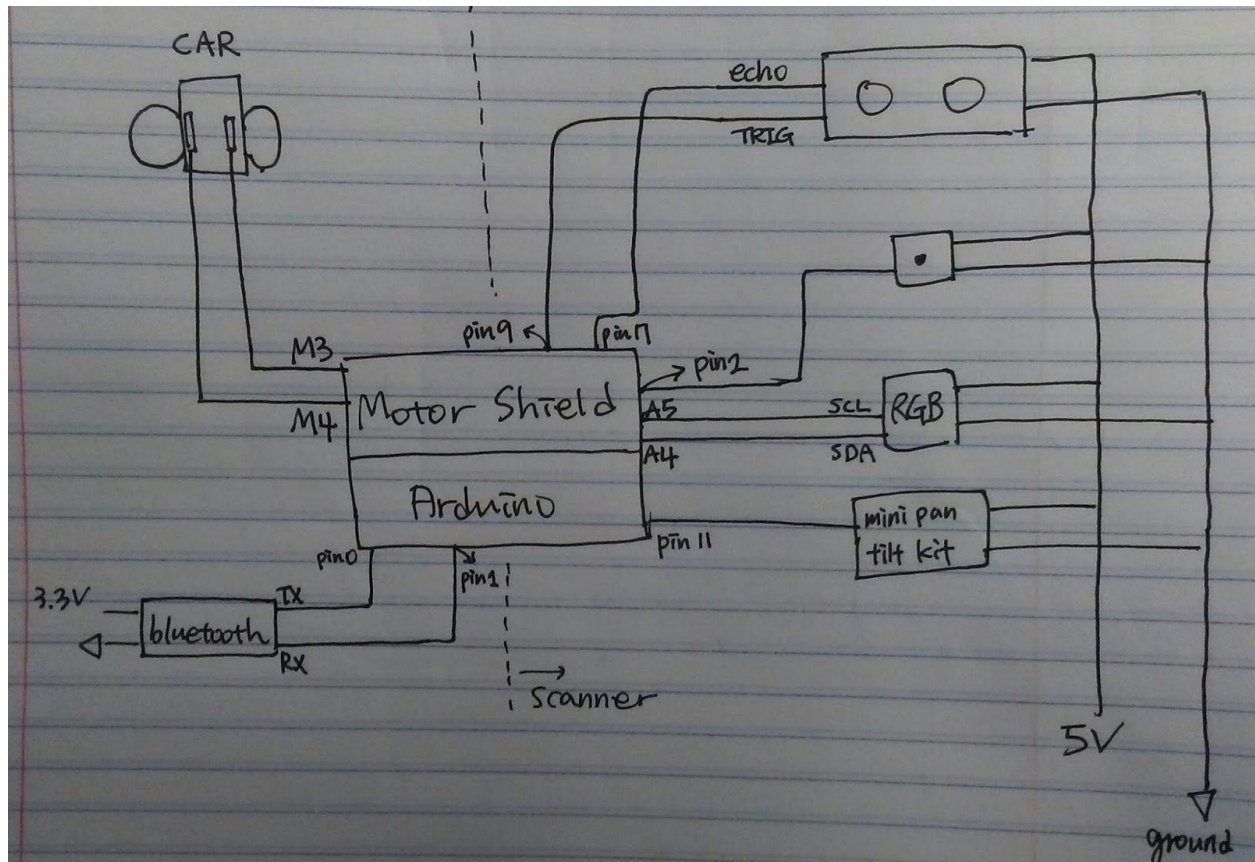 CAR
echo
TRIG
pin9
pin17
M3
pin2
Motor Shield
M4
A5
SCL
RGB
A4
SDA
Arduino
mini pan
tilt kit
pin0
pin1
pin 11
3.3V
TX
bluetooth
RX
scanner
5V
ground